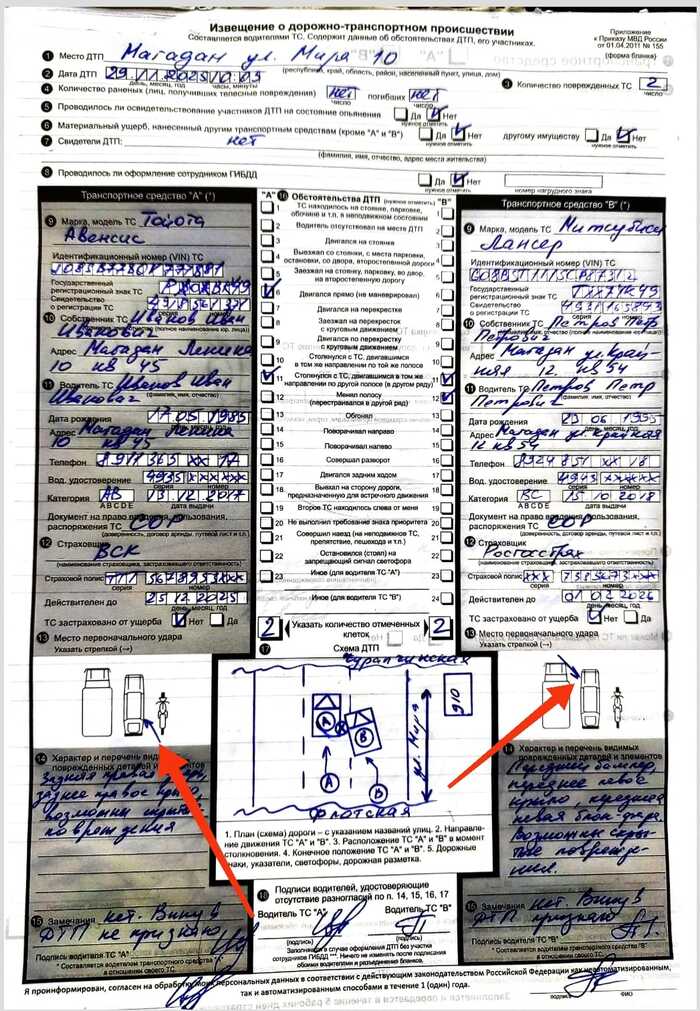 Извещение о дорожно-транспортном происшествии
Приложение
к Приказу МВД России
от 01.04.2011 № 155
(форма бланка)
Составляется водителями ТС. Содержит данные об обстоятельствах ДТП, его участниках.
1 Место ДТП Магадан ул. Мира 10
(республика, край, область, район, населенный пункт, улица, дом)
2 Дата ДТП 29.11.2025
день, месяц, год часы, минуты
3 Количество поврежденных ТС 2
число
4 Количество раненых (лиц, получивших телесные повреждения) нет погибших нет
число
5 Проводилось ли освидетельствование участников ДТП на состояние опьянения Да Нет
нужное отметить
6 Материальный ущерб, нанесенный другим транспортным средствам (кроме "А" и "В") Да Нет другому имуществу Да Нет
нужное отметить нужное отметить
7 Свидетели ДТП: нет
(фамилия, имя, отчество, адрес места жительства)
8 Проводилось ли оформление сотрудником ГИБДД Да Нет
нужное отметить номер нагрудного знака
Транспортное средство "А" (*)
9 Марка, модель ТС Тойота
Авенсис
Идентификационный номер (VIN) ТС
Государственный
регистрационный знак ТС
Свидетельство
о регистрации ТС
серия номер
10 Собственник ТС Иванов Иван
Иванович
Адрес Магадан Ленина
10 кв 45
11 Водитель ТС Иванов Иван
Иванович (фамилия, имя, отчество)
Дата рождения 17.05.1985
день, месяц, год
Адрес Магадан Ленина
10 кв 45
Телефон 8911 363 хх 17
Вод. удостоверение 4935 ХХХХХХ
серия номер
Категория АВ 13.12.2017
ABCDE дата выдачи
Документ на право владения, пользования,
распоряжения ТС СОР
(доверенность, договор аренды, путевой лист и т.п.)
12 Страховщик
ВСК
(наименование страховщика, застраховавшего ответственность)
Страховой полис
серия номер
Действителен до 25.12.2025
день, месяц, год
ТС застраховано от ущерба Нет Да
13 Место первоначального удара
Указать стрелкой (→)
14 Характер и перечень видимых
поврежденных деталей и элементов
заднее правое
возможны скрытые
повреждения
15 Замечания нет. Вину в
ДТП не признаю
Подпись водителя ТС "А"
* Составляется водителем транспортного средства "А"
в отношении своего ТС.
"А" 16 Обстоятельства ДТП (нужное отметить) "В"
1 ТС находилось на стоянке, парковке, обочине и т.п. в неподвижном состоянии 1
2 Водитель отсутствовал на месте ДТП 2
3 Двигался на стоянке 3
4 Выезжал со стоянки, с места парковки, остановки, со двора, второстепенной дороги 4
5 Заезжал на стоянку, парковку, во двор, на второстепенную дорогу 5
6 Двигался прямо (не маневрировал) 6
7 Двигался на перекрестке 7
8 Заезжал на перекресток с круговым движением 8
9 Двигался по перекрестку с круговым движением 9
10 Столкнулся с ТС, двигавшимся в том же направлении по той же полосе 10
11 Столкнулся с ТС, двигавшимся в том же направлении по другой полосе (в другом ряду) 11
12 Менял полосу (перестраивался в другой ряд) 12
13 Обгонял 13
14 Поворачивал направо 14
15 Поворачивал налево 15
16 Совершал разворот 16
17 Двигался задним ходом 17
18 Выехал на сторону дороги, предназначенную для встречного движения 18
19 Второе ТС находилось слева от меня 19
20 Не выполнил требование знака приоритета 20
21 Совершил наезд (на неподвижное ТС, препятствие, пешехода и т.п.) 21
22 Остановился (стоял) на запрещающий сигнал светофора 22
23 Иное (для водителя ТС "А") 23
24 Иное (для водителя ТС "В") 24
2 Указать количество отмеченных клеток 2
17 Схема ДТП
А
В
А
В
ул. Мира
Флотская
1. План (схема) дороги – с указанием названий улиц. 2. Направление движения ТС "А" и "В". 3. Расположение ТС "А" и "В" в момент столкновения. 4. Конечное положение ТС "А" и "В". 5. Дорожные знаки, указатели, светофоры, дорожная разметка.
18 Подписи водителей, удостоверяющие
отсутствие разногласий по п. 14, 15, 16, 17
Водитель ТС "А" Водитель ТС "В"
(подпись) (подпись)
Заполняется в случае оформления ДТП без участия
сотрудников ГИБДД *** Ничего не изменять после подписания
обоими водителями и разъединения бланков.
Транспортное средство "В" (*)
9 Марка, модель ТС Митсубиси
Лансер
Идентификационный номер (VIN) ТС
Государственный
регистрационный знак ТС
Свидетельство
о регистрации ТС
серия номер
10 Собственник ТС Петров Петр
Петрович
Адрес Магадан ул. Край-
няя 12 кв 54
11 Водитель ТС Петров Петр
Петрович (фамилия, имя, отчество)
Дата рождения 23 06 1995
день, месяц, год
Адрес Магадан ул. Крайняя
12 кв 54
Телефон 8924 851 хх 18
Вод. удостоверение 4943 ХХХХХХ
серия номер
Категория ВС 15 10 2018
ABCDE дата выдачи
Документ на право владения, пользования,
распоряжения ТС СОР
(доверенность, договор аренды, путевой лист и т.п.)
12 Страховщик
Росгосстрах
(наименование страховщика, застраховавшего ответственность)
Страховой полис ХХХ
серия номер
Действителен до 01 02 2026
день, месяц, год
ТС застраховано от ущерба Нет Да
13 Место первоначального удара
Указать стрелкой (→)
14 Характер и перечень видимых
поврежденных деталей и элементов
Передний бампер,
переднее левое
крыло, передняя
левая блок-фара
возможны скры-
тые поврежде-
ния.
15 Замечания нет. Вину в
ДТП признаю
Подпись водителя ТС "В"
* Составляется водителем транспортного средства "В"
в отношении своего ТС.
Я проинформирован, согласен на обработку моих персональных данных в соответствии с действующим законодательством Российской Федерации как неавтоматизированным,
так и автоматизированным способами в течение 1 (один) года.
подпись ФИО